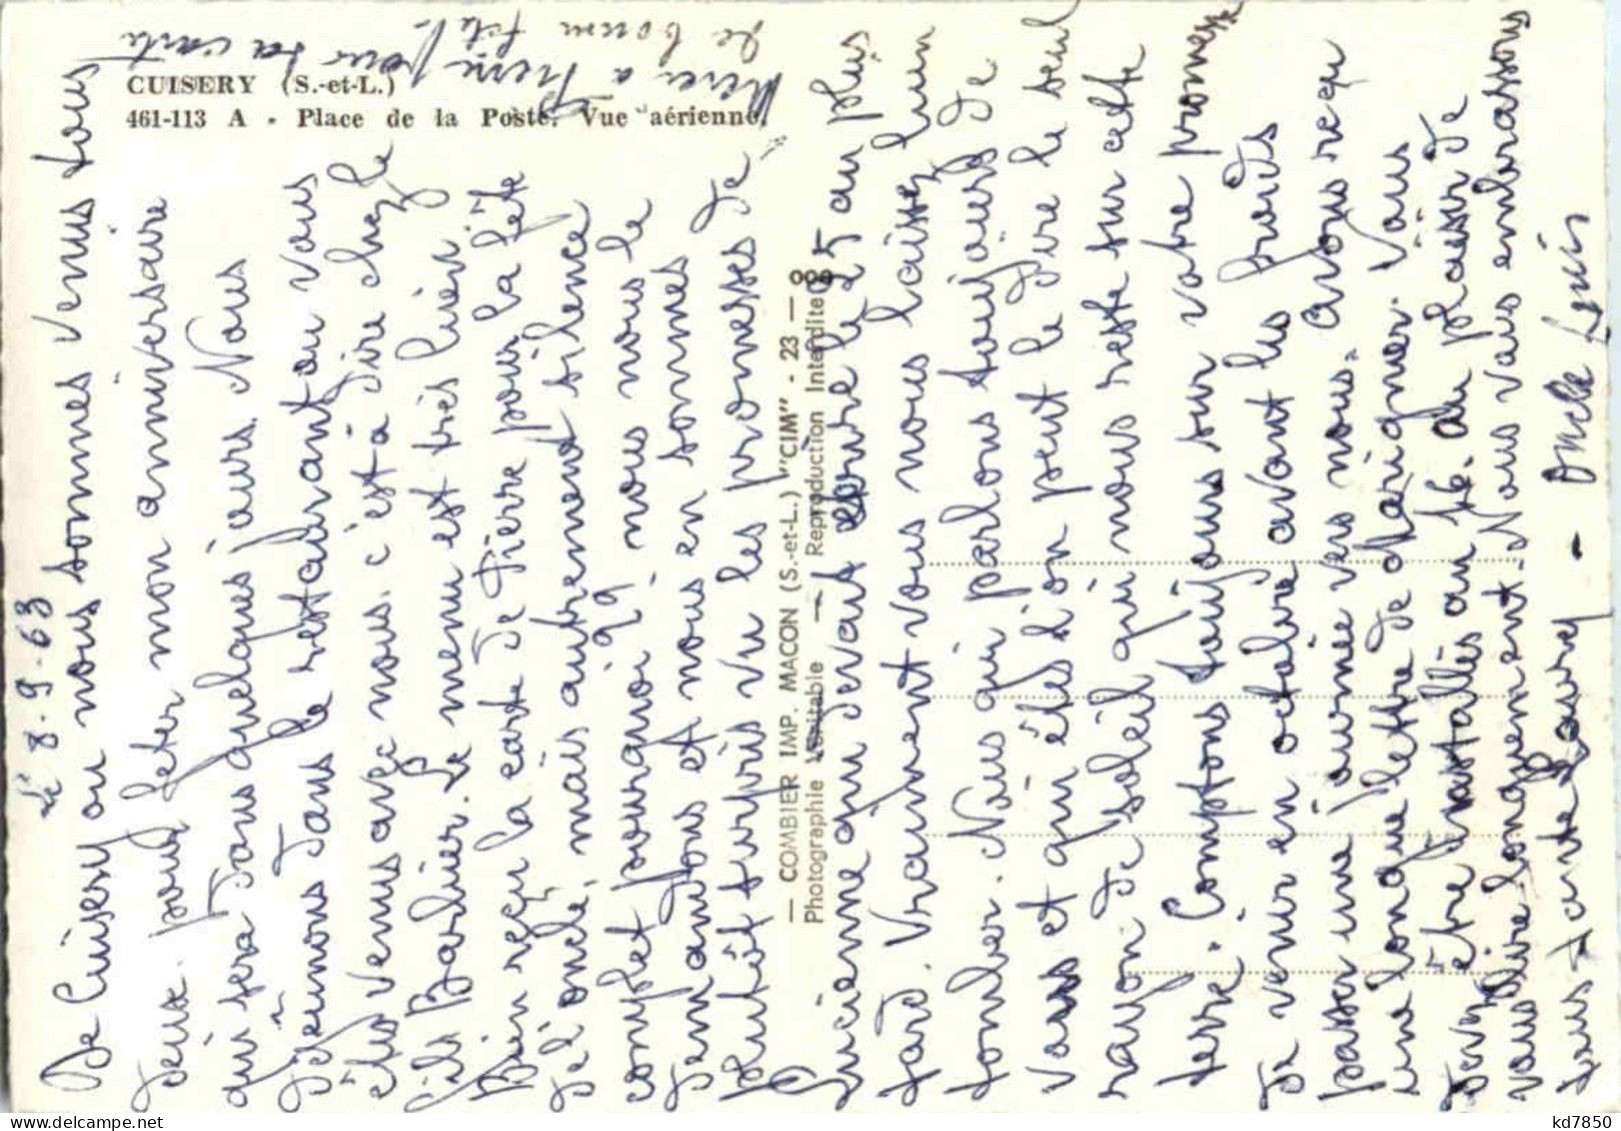 CUISERY (S.-et-L.)
461-113 A - Place de la Poste. Vue aérienne.
Merci a Pierre pour sa carte
de bonne fête
le 8.9.63
De Cuisery ou nous sommes venus tous
deux pour feter mon anniversaire
qui sera dans quelques jours. Nous
déjeunons dans le restaurant ou vous
êtes venus avec nous. c'est à dire chez le
fils Barbier. Le menu est très bien
Bien reçu la carte de Pierre pour la fête
de l'oncle, mais autrement silence
complet pourquoi ?? nous nous le
demandons et nous en sommes
plutôt surpris vu les promesses de
Lucienne qui devait le 25 au plus
tard. Vraiment vous nous laissez
tomber. Nous qui parlons toujours de
vous et qui êtes l'on peut le dire le seul
rayon de soleil qui nous reste sur cette
terre. Comptons toujours sur votre promesse
de venir en octobre avant les froids
passer une journée vers nous. avons reçu
une longue lettre de Marignier. Vous
devez être installés au 16. Au plaisir de
vous lire longuement. Nous vous embrassons
tous tante Laurey - Oncle Louis
— COMBIER IMP. MACON (S.-et-L.) "CIM" - 23 —
Photographie Véritable — Reproduction Interdite
kd7850